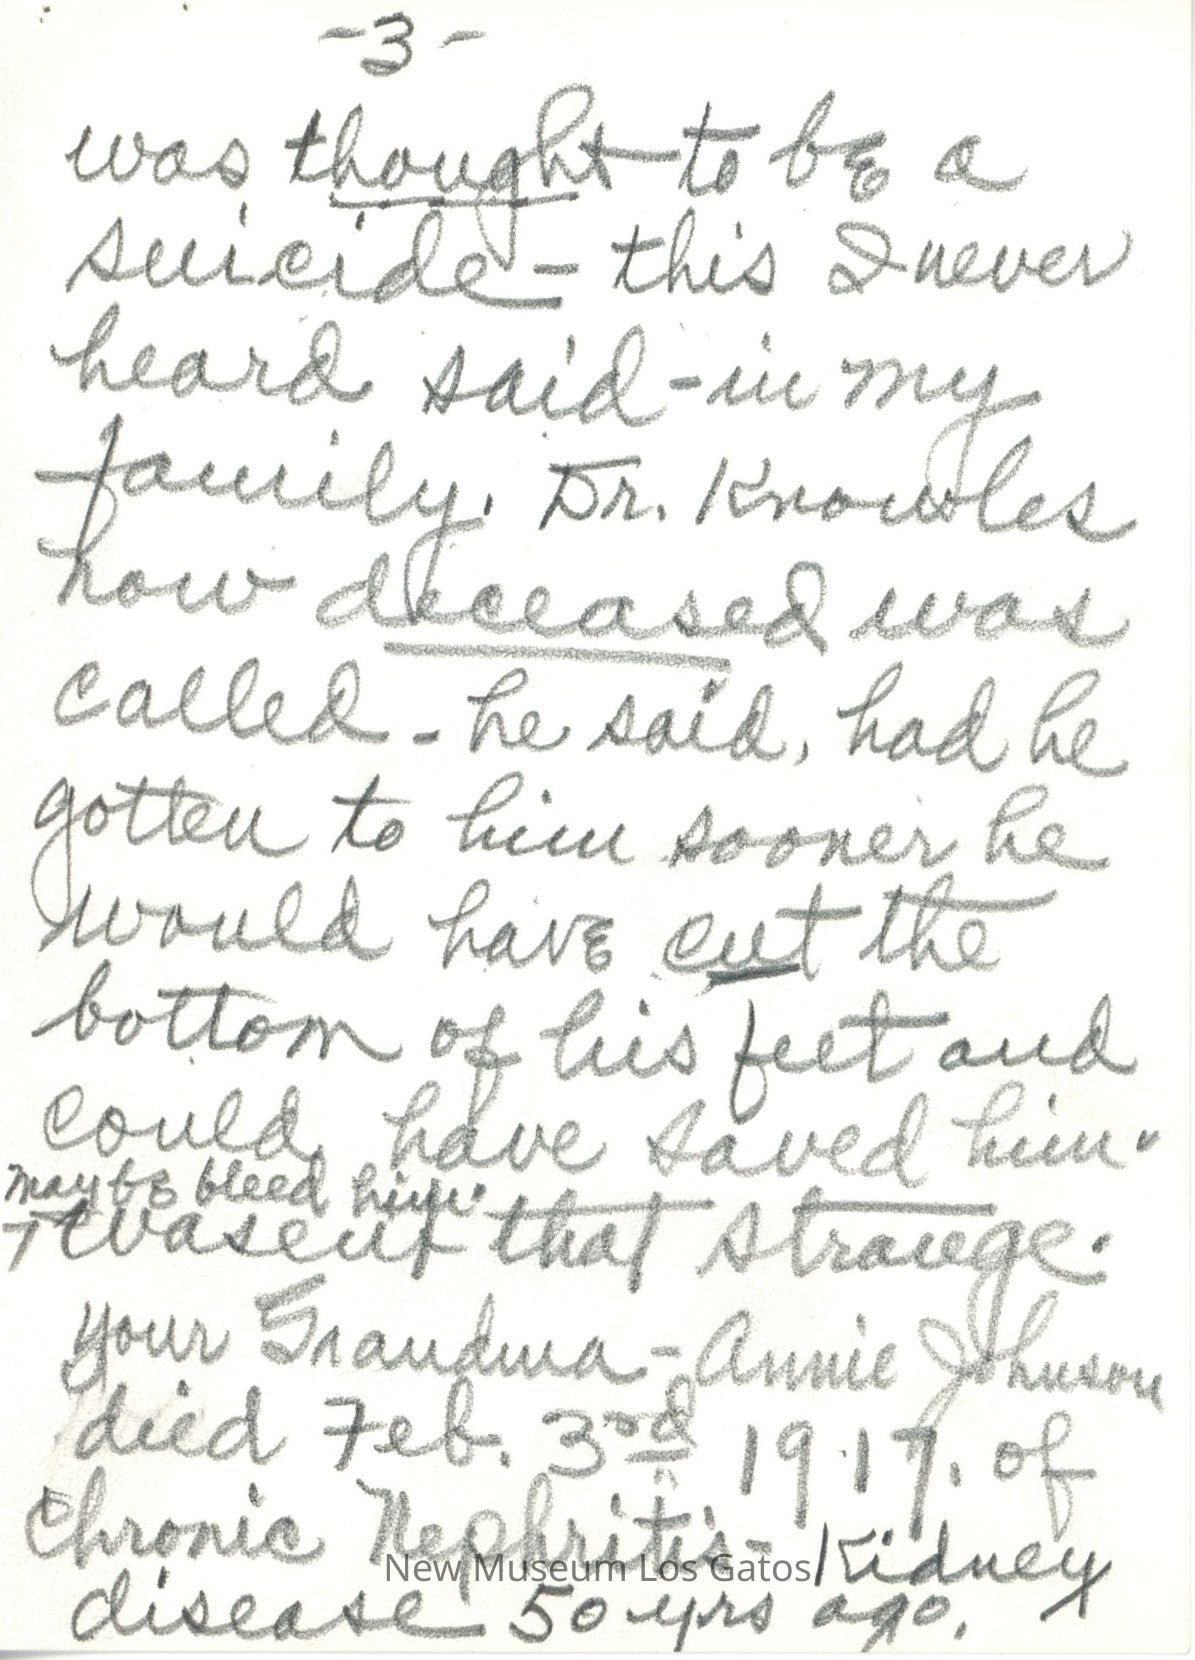 -3-
was thought to be a
suicide - this I never
heard said - in my
family. Dr. Knowles
now deceased was
called - he said, had he
gotten to him sooner he
would have cut the
bottom of his feet and
could have saved him.
maybe bleed him.
Wasent that strange.
your Grandma - Annie Johnson
died Feb. 3rd 1917. of
Chronic Nephritis - Kidney
disease 50 yrs ago.
New Museum Los Gatos